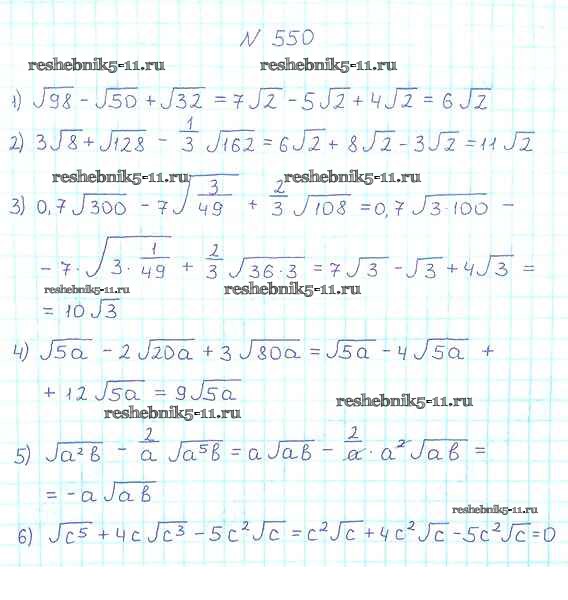 N 550
reshebnik5-11.ru reshebnik5-11.ru
1) √98 - √50 + √32 = 7√2 - 5√2 + 4√2 = 6√2
2) 3√8 + √128 - 1/3 √162 = 6√2 + 8√2 - 3√2 = 11√2
reshebnik5-11.ru reshebnik5-11.ru
3) 0,7√300 - 7√(3/49) + 2/3 √108 = 0,7√(3·100) -
- 7·√(3·1/49) + 2/3 √(36·3) = 7√3 - √3 + 4√3 =
reshebnik5-11.ru reshebnik5-11.ru
= 10√3
4) √5a - 2√20a + 3√80a = √5a - 4√5a +
+ 12√5a = 9√5a
reshebnik5-11.ru reshebnik5-11.ru
5) √a²b - 2/a √a⁵b = a√ab - 2/a · a²√ab =
= -a√ab
reshebnik5-11.ru
6) √c⁵ + 4c√c³ - 5c²√c = c²√c + 4c²√c - 5c²√c = 0